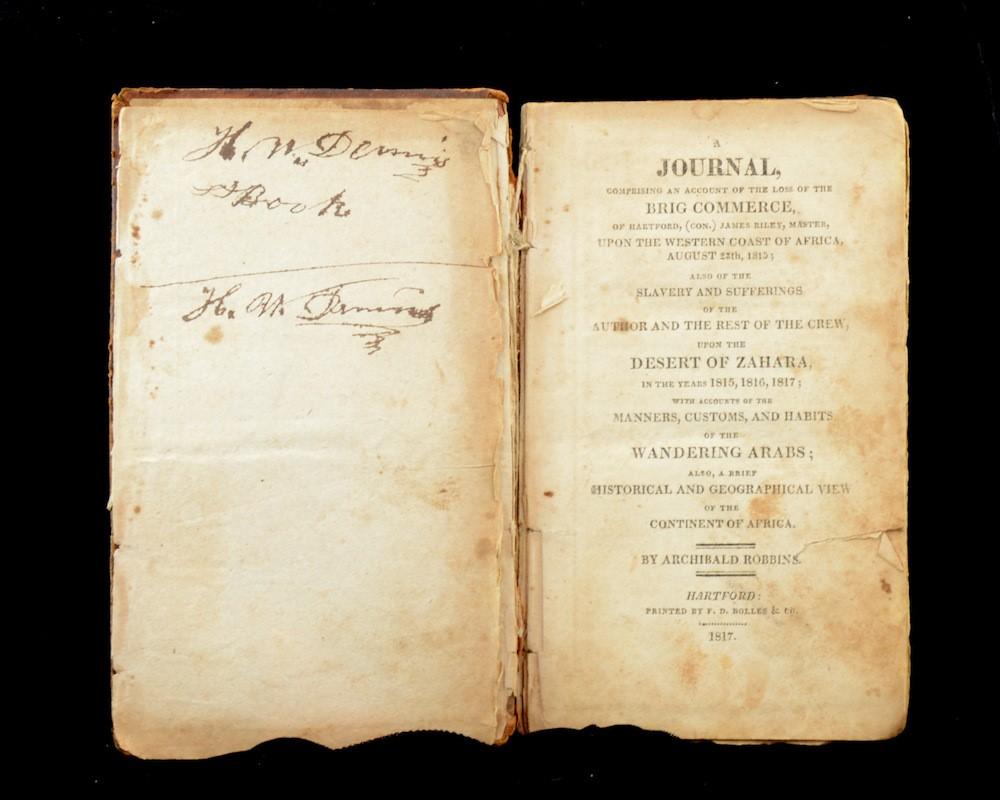 H. W. Dennis
Book
H. W. Dennis
A
JOURNAL,
COMPRISING AN ACCOUNT OF THE LOSS OF THE
BRIG COMMERCE,
OF HARTFORD, (CON.) JAMES RILEY, MASTER,
UPON THE WESTERN COAST OF AFRICA,
AUGUST 28th, 1815;
ALSO OF THE
SLAVERY AND SUFFERINGS
OF THE
AUTHOR AND THE REST OF THE CREW,
UPON THE
DESERT OF ZAHARA,
IN THE YEARS 1815, 1816, 1817;
WITH ACCOUNTS OF THE
MANNERS, CUSTOMS, AND HABITS
OF THE
WANDERING ARABS;
ALSO, A BRIEF
HISTORICAL AND GEOGRAPHICAL VIEW
OF THE
CONTINENT OF AFRICA.
BY ARCHIBALD ROBBINS.
HARTFORD:
PRINTED BY F. D. BOLLES & CO.
1817.